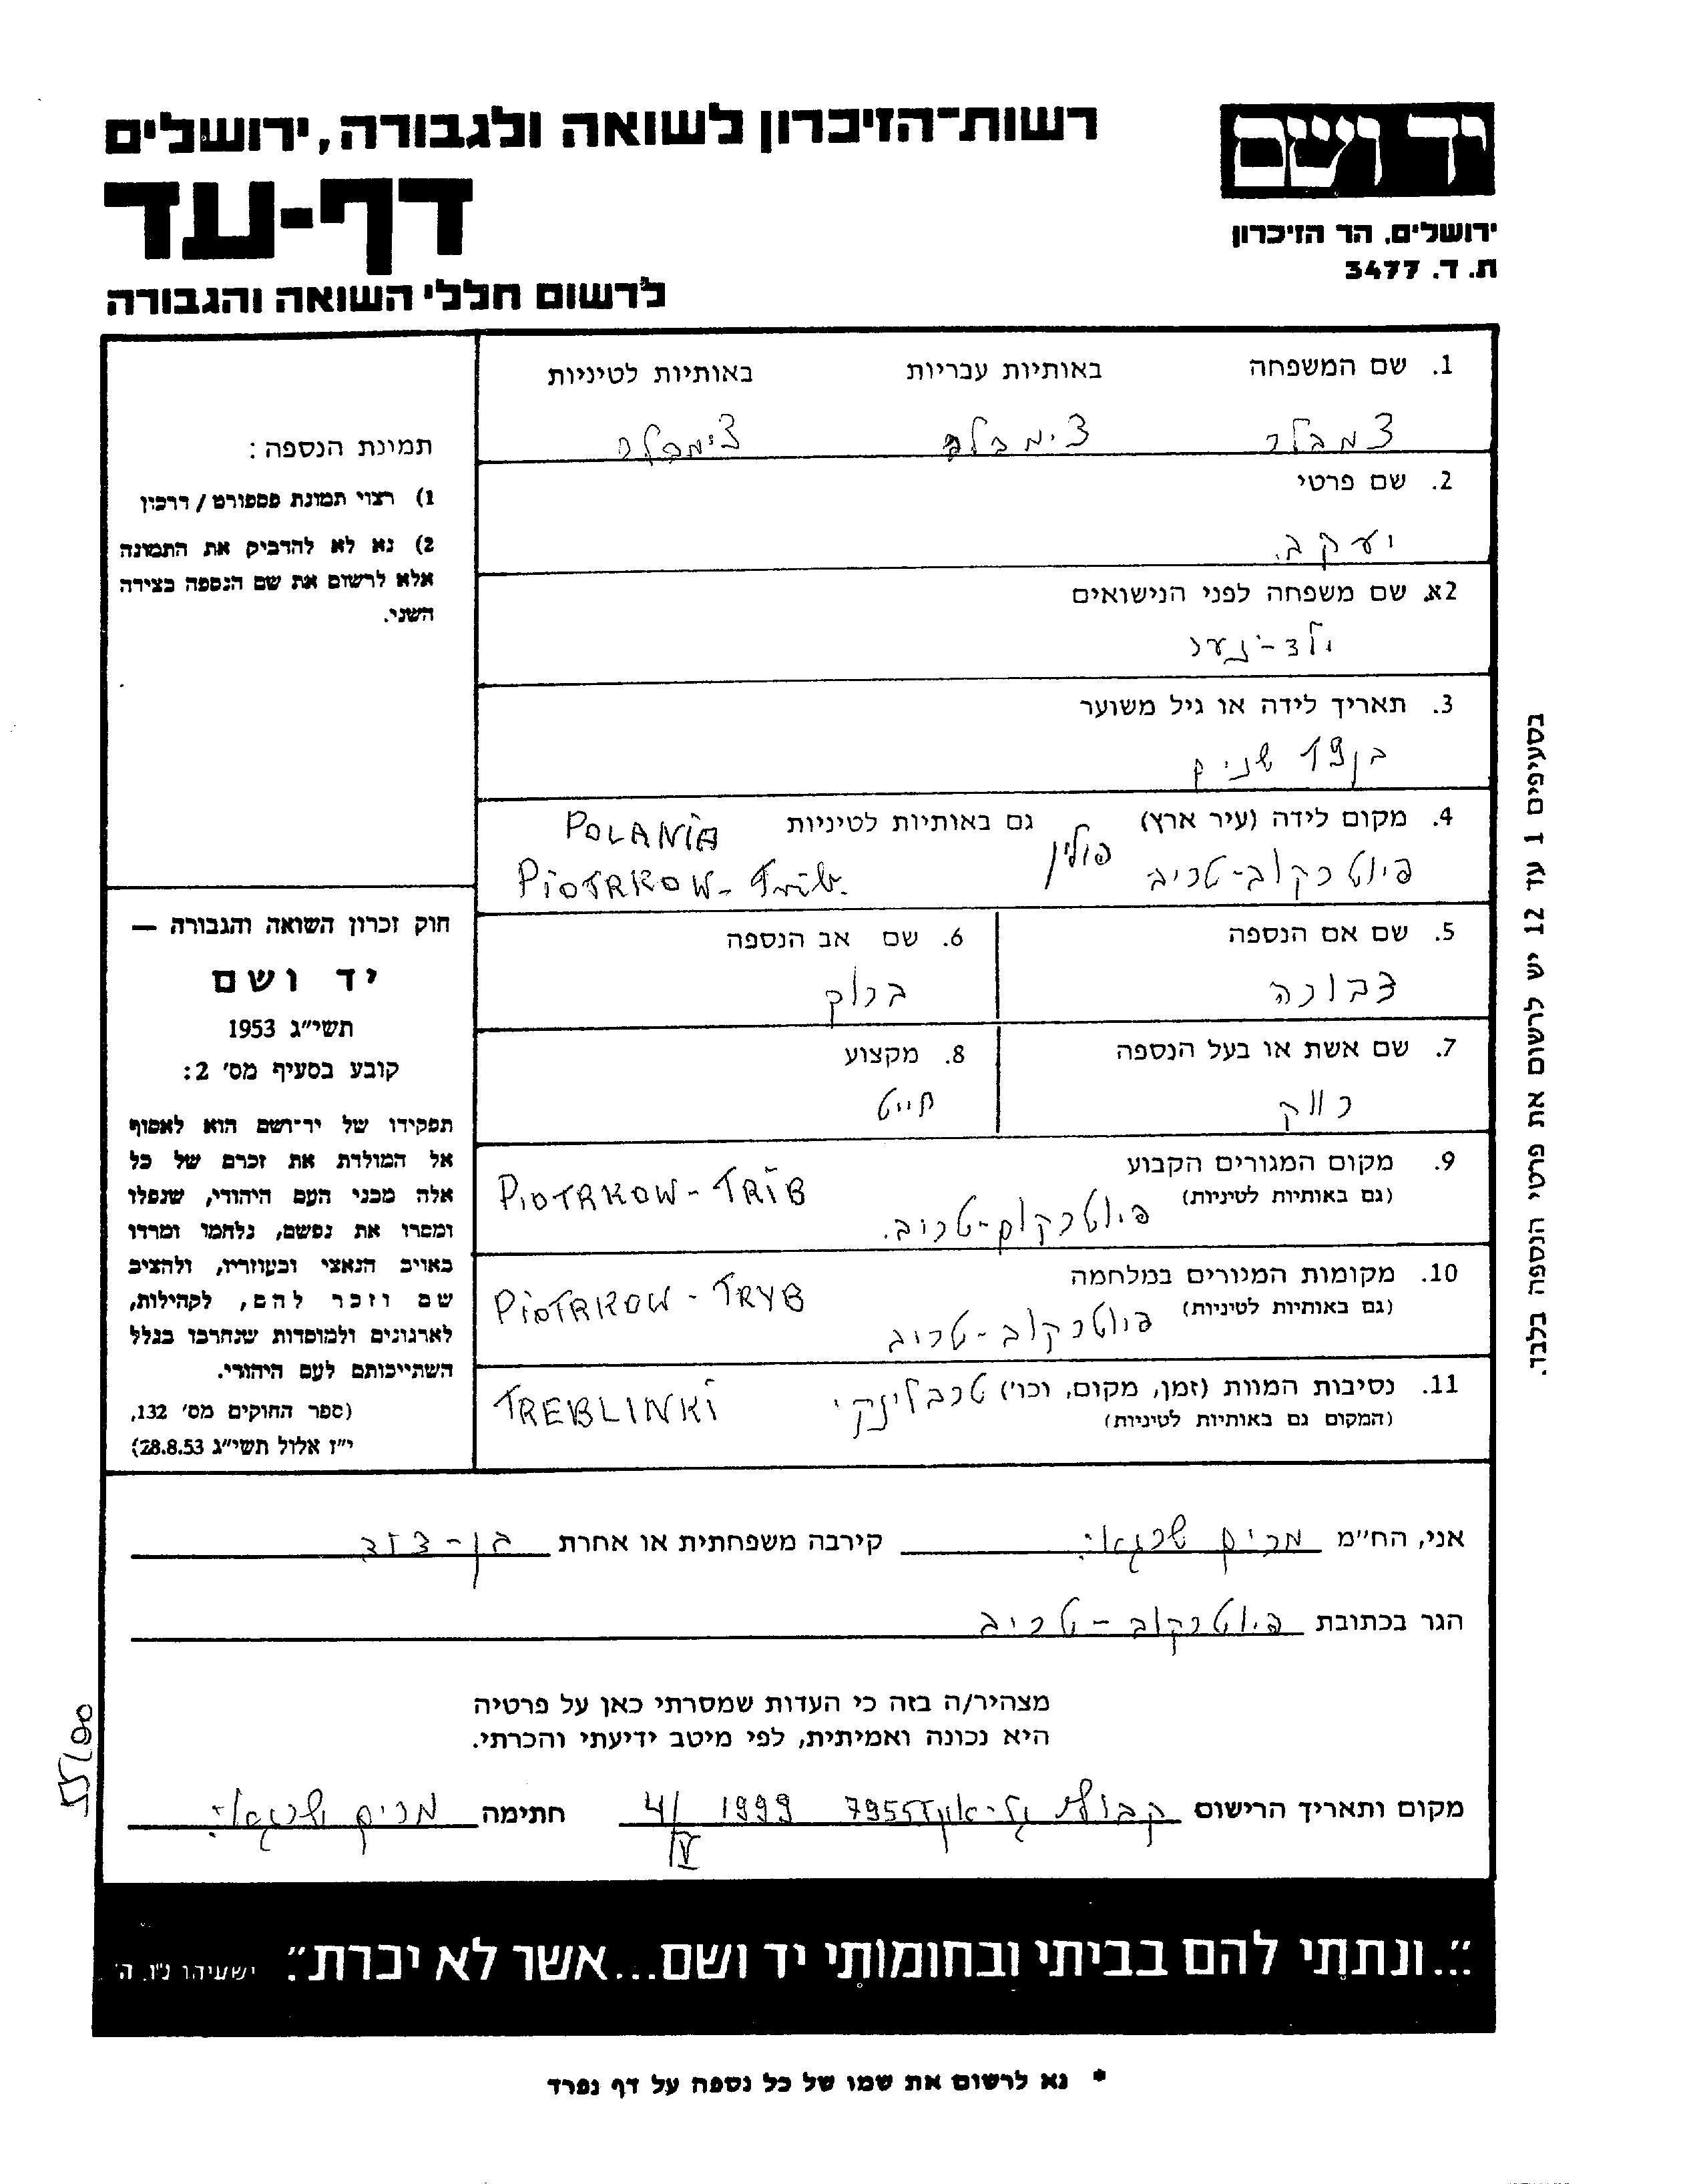 רשות־הזיכרון לשואה ולגבורה, ירושלים
דף-עד
לרשום חללי השואה והגבורה
יד ושם
ירושלים, הר הזיכרון
ת. ד. 3477
1. שם המשפחה באותיות עבריות באותיות לטיניות
צמבלר צימבלר צימבלר
2. שם פרטי
יעקב.
2א. שם משפחה לפני הנישואים
3. תאריך לידה או גיל משוער
בן 19 שנים
4. מקום לידה (עיר ארץ) גם באותיות לטיניות POLANIA
פיוטרקוב-טריב פולין PiOTRKOW-Trib.
5. שם אם הנספה
צבורה
6. שם אב הנספה
ברוך
7. שם אשת או בעל הנספה
רווק
8. מקצוע
חייט
9. מקום המגורים הקבוע
(גם באותיות לטיניות)
PiOTRKOW-TRiB
פיוטרקוב-טריב.
10. מקומות המגורים במלחמה
(גם באותיות לטיניות)
PiOTRKOW-TRYB
פיוטרקוב-טריב
11. נסיבות המוות (זמן, מקום, וכו') טרבלינקי
(המקום גם באותיות לטיניות)
TREBLINKI
תמונת הנספה:
1) רצוי תמונת פספורט / דרכון
2) נא לא להדביק את התמונה
אלא לרשום את שם הנספה בצידה
השני.
חוק זכרון השואה והגבורה —
יד ושם
תשי״ג 1953
קובע בסעיף מס' 2:
תפקידו של יד־ושם הוא לאסוף
אל המולדת את זכרם של כל
אלה מבני העם היהודי, שנפלו
ומסרו את נפשם, נלחמו ומרדו
באויב הנאצי ובעוזריו, ולהציב
שם וזכר להם, לקהילות,
לארגונים ולמוסדות שנחרבו בגלל
השתייכותם לעם היהודי.
(ספר החוקים מס' 132,
י״ז אלול תשי״ג 28.8.53)
בסעיפים 1 עד 12 יש לרשום את פרטי הנספה בלבד.
אני, הח״מ מרים שרגאי קירבה משפחתית או אחרת בן-דוד
הגר בכתובת פיוטרקוב-טריב
מצהיר/ה בזה כי העדות שמסרתי כאן על פרטיה
היא נכונה ואמיתית, לפי מיטב ידיעתי והכרתי.
מקום ותאריך הרישום 1999 4/V חתימה מרים שרגאי
״...ונתתי להם בביתי ובחומותי יד ושם...אשר לא יכרת״. ישעיהו נ״ו, ה'
* נא לרשום את שמו של כל נספה על דף נפרד